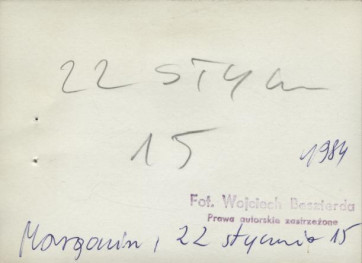 22 STYCZ
15
1984
Fot. Wojciech Beszterda
Prawa autorskie zastrzeżone
Margonin, 22 stycznia 15